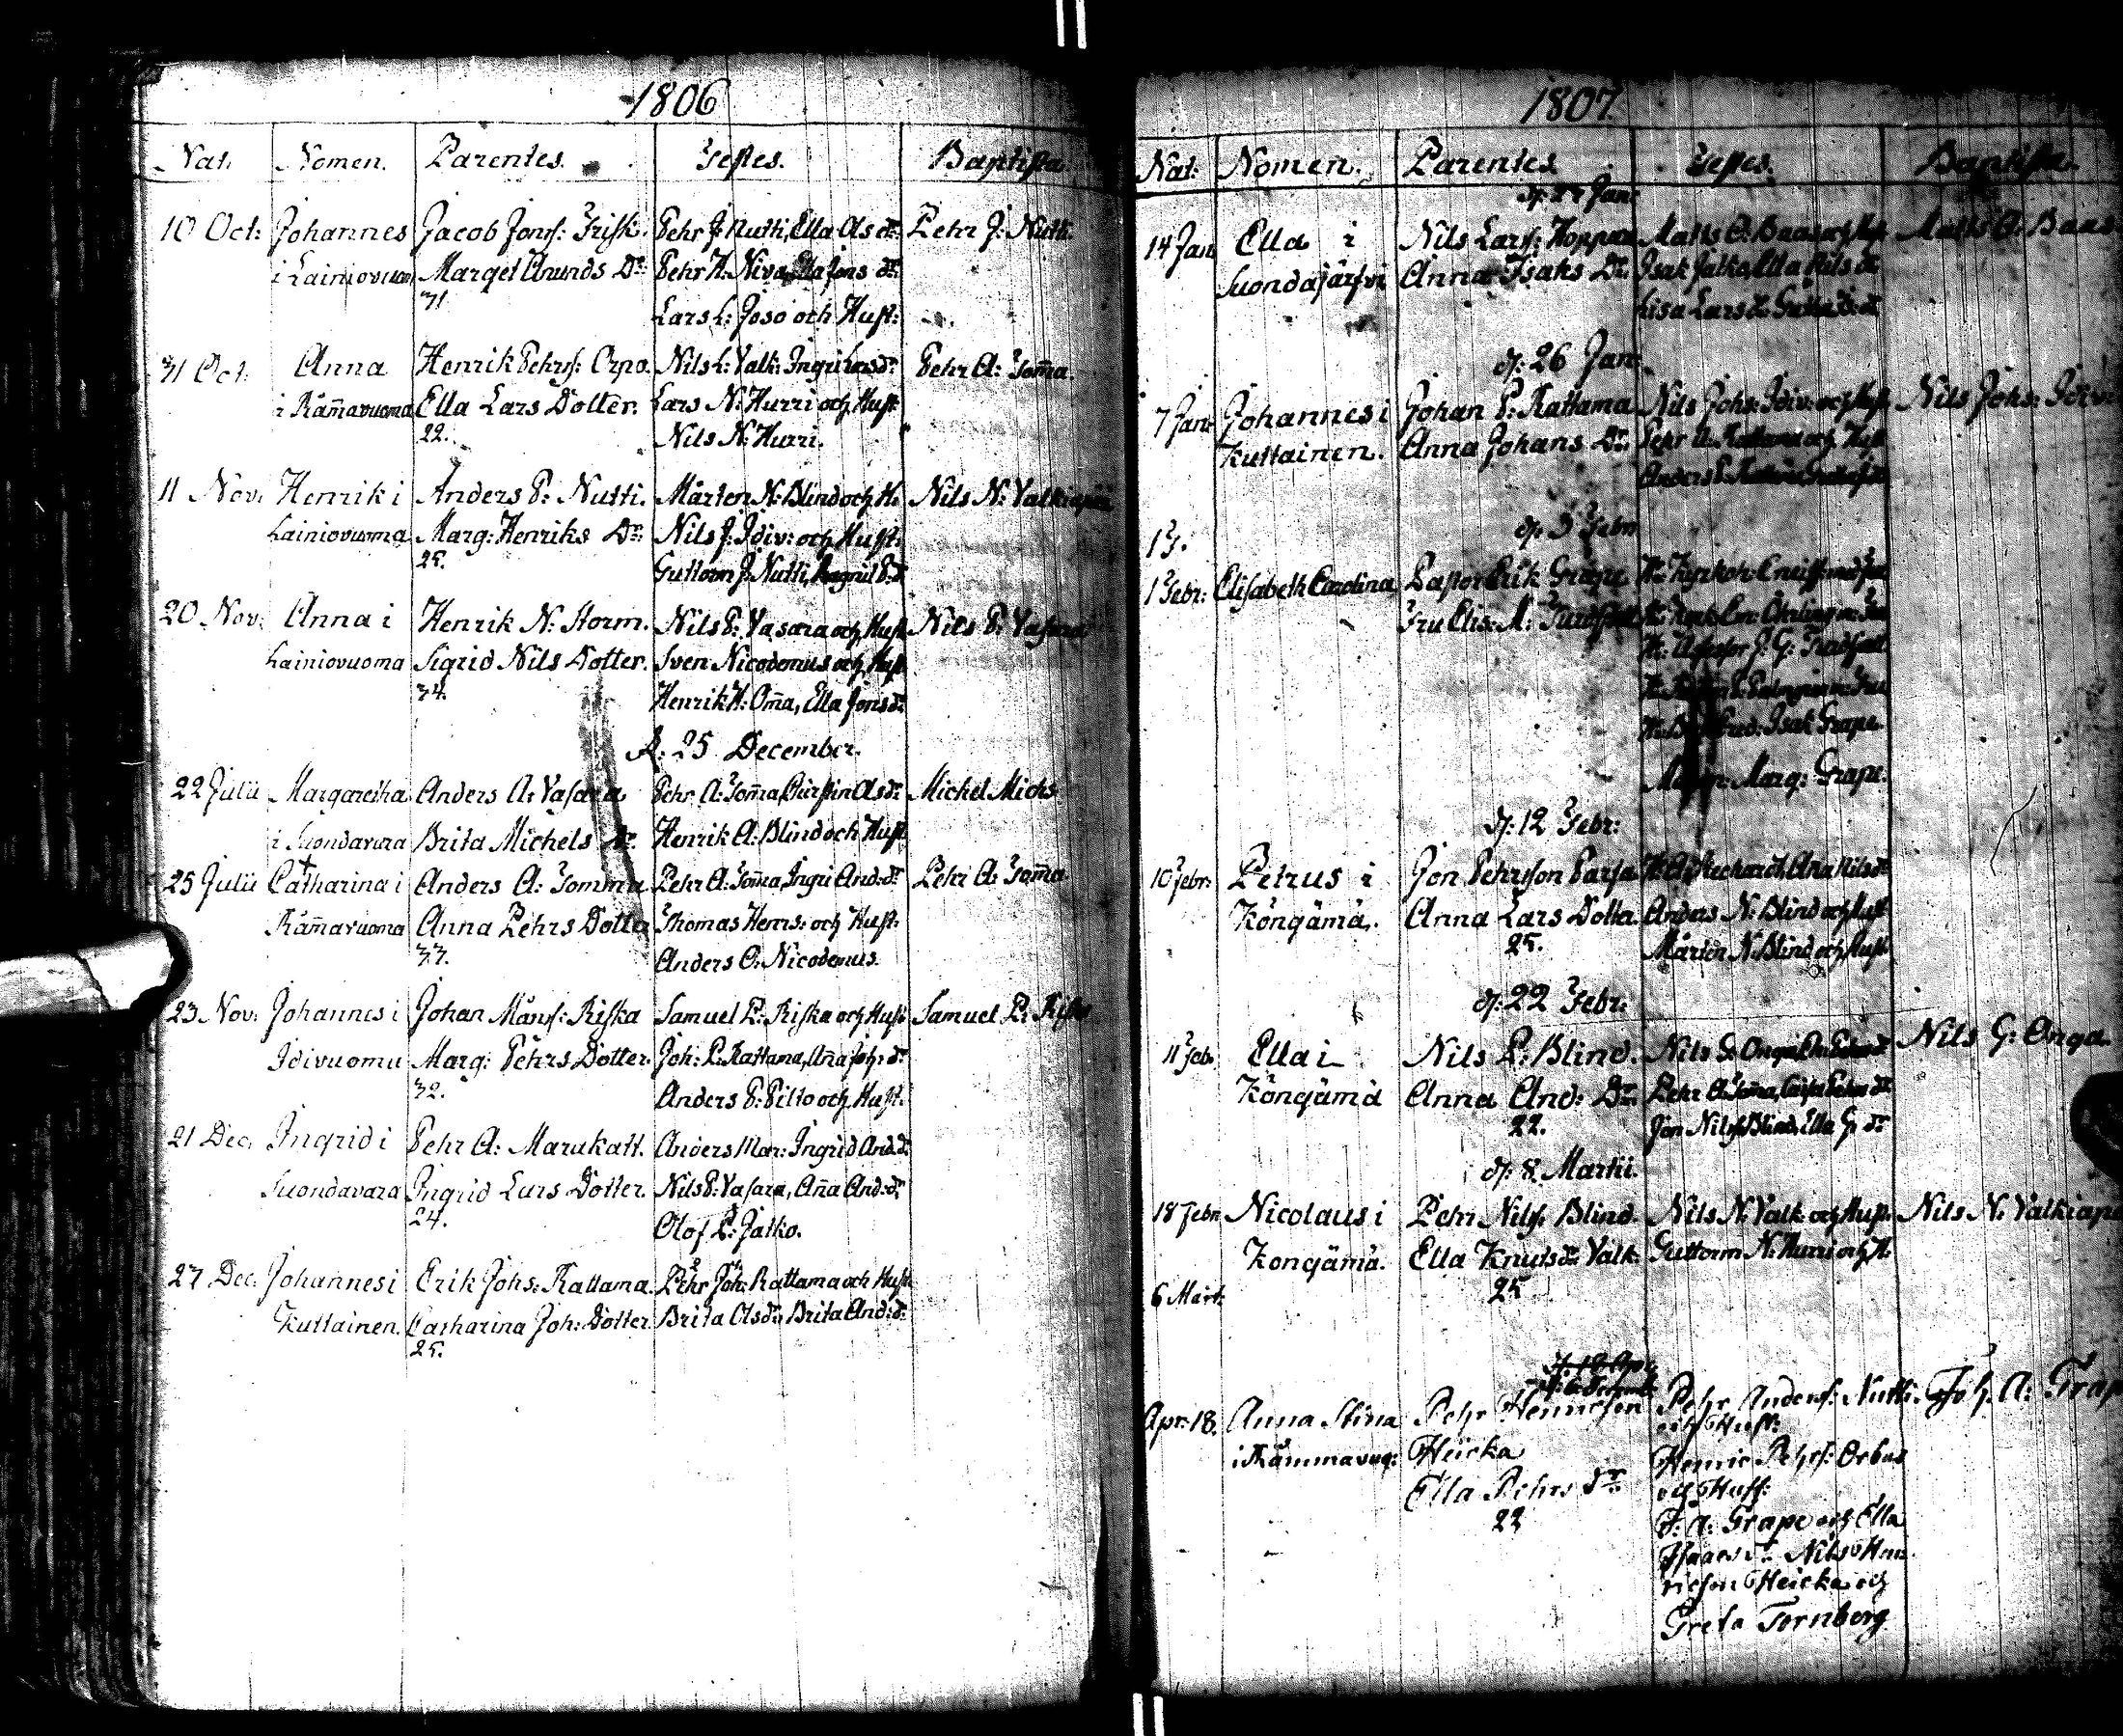 1806
Nat. Nomen. Parentes. Testes. Baptista
10 Oct: Johannes Jacob Jonss: Frisk. Pehr J: Nutti, Ella Ols dr: Pehr J: Nutti
i Lainiovuom Marget Amunds Dr: Pehr H: Niva, Ella Jons dr:
31 Lars L: Joso och Hust:
31 Oct. Anna Henrik Pehrs: Orpo. Nils L: Valk: Ingri Larsdr Pehr A: Tom̄a.
i Räm̄avuoma Ella Lars Dotter. Lars N: Hurri och Hust
22. Nils N: Hurri.
11 Nov: Henrik i Anders P: Nutti. Mårten N: Blind och H: Nils N: Valkiapää
Lainiovuoma Marg: Henriks Dr: Nils J: Idiv: och Hust:
25. Guttorm J: Nutti,
20 Nov: Anna i Henrik N: Storm. Nils P: Vasara och Hust Nils P: Vasara
Lainiovuoma Sigrid Nils Dotter. Sven Nicodemus och Hust
34. Henrik H: Om̄a, Ella Jons dr
D: 25 December.
22 Julii Margaretha Anders A: Vasara Pehr A: Tom̄a, Chirstin As dr Michel Michs
i Suondavara Brita Michels Dr. Henrik A: Blind och Hust
25 Julii Catharina i Anders A: Tomma Pehr A: Tom̄a, Ingri And: dr Pehr A: Tom̄a
Räm̄avuoma Anna Pehrs Dotter Thomas Henrs: och Hust:
33. Anders O: Nicodemus.
23 Nov: Johannes i Johan Månss: Riska Samuel P: Riska och Hust Samuel P: Riska
Idivuoma Marg: Pehrs Dotter. Joh: P: Rattama, An̄a Joh: dr
32. Anders P: Pilto och Hust:
21 Dec. Ingrid i Pehr A: Marakatt. Anders Mar: Ingrid And: dr
Suondavara Ingrid Lars Dotter. Nils P: Vasara, An̄a And: dr
24. Olof P: Jatko.
27 Dec. Johannes i Erik Johs: Rattama. Pehr Joh: Rattama och Hust
Kuttainen. Catharina Joh: Dotter. Brita Ols dr: Brita And: dr
25.
1807.
Nat: Nomen. Parentes Testes. Baptista.
Jan:
14 Jan Ella i Nils Larss: Hoppare Matts O: Baas och Hust Matts O: Baas
Suondajärfvi Anna Isaks Dr. Isak Jatko, Ella Nils dr
Lisa Lars dr
d: 26 Jan:
7 Jan: Johannes i Johan P: Rattama Nils Johs: Idiv: och Hust Nils Johs: Idiv:
Kuttainen. Anna Johans Dr. Pehr A: Rattama och Hust
Anders P: Rattama
d: 3 Febr
1 F.
1 Febr: Elisabeth Carolina Pastor Erik Grape
Fru Elis: M:
Assessor J: G:
Isak Grape
Marg: Grape.
d: 12 Febr:
10 Febr: Petrus i Jon Pehrsson Parsa
Köngämä. Anna Lars Dotter. Anders N: Blind och Hust
25. Mårten N: Blind och Hust
d: 22 Febr:
11 Febr Ella i Nils P: Blind. Nils G: Onga Nils G: Onga.
Köngämä Anna And: Dr. Pehr A: Tom̄a,
22. Jon Nilss Blind, Ella G: dr
d: 8 Martii.
18 Febr. Nicolaus i Pehr Nilss: Blind. Nils N: Valk: och Hust. Nils N: Valkiapä
Köngämä. Ella Knuts dr Valk: Guttorm N: Hurri och H:
25
6 Mart:
Apr: 18. Anna Stina Pehr Henricson Pehr Anderss: Nutti Joh. A: Grap
och Hust:
i Rämmavuo: Heicka Henric Pehrs: Orbus
Ella Pehrs dr och Hust:
22 J: A: Grape och Ella
Isaacs dr Nils Hen
ricson Heicka och
Greta Tornberg